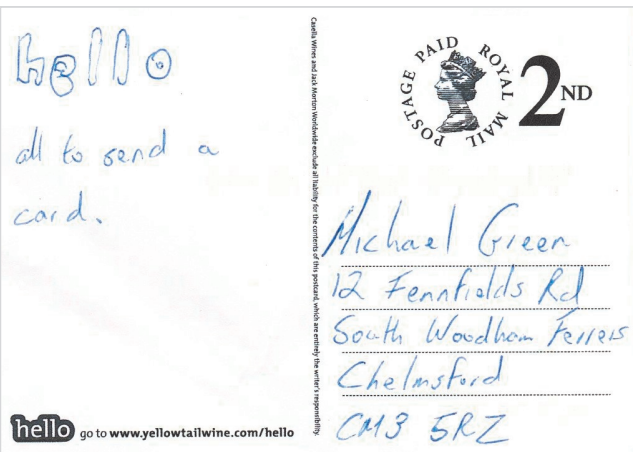 hello
all to send a
card.
hello go to www.yellowtailwine.com/hello
Casella Wines and Jack Morton Worldwide exclude all liability for the contents of this postcard, which are entirely the writer's responsibility.
POSTAGE PAID ROYAL MAIL
2ND
Michael Green
12 Fennfields Rd
South Woodham Ferrers
Chelmsford
CM3 5RZ